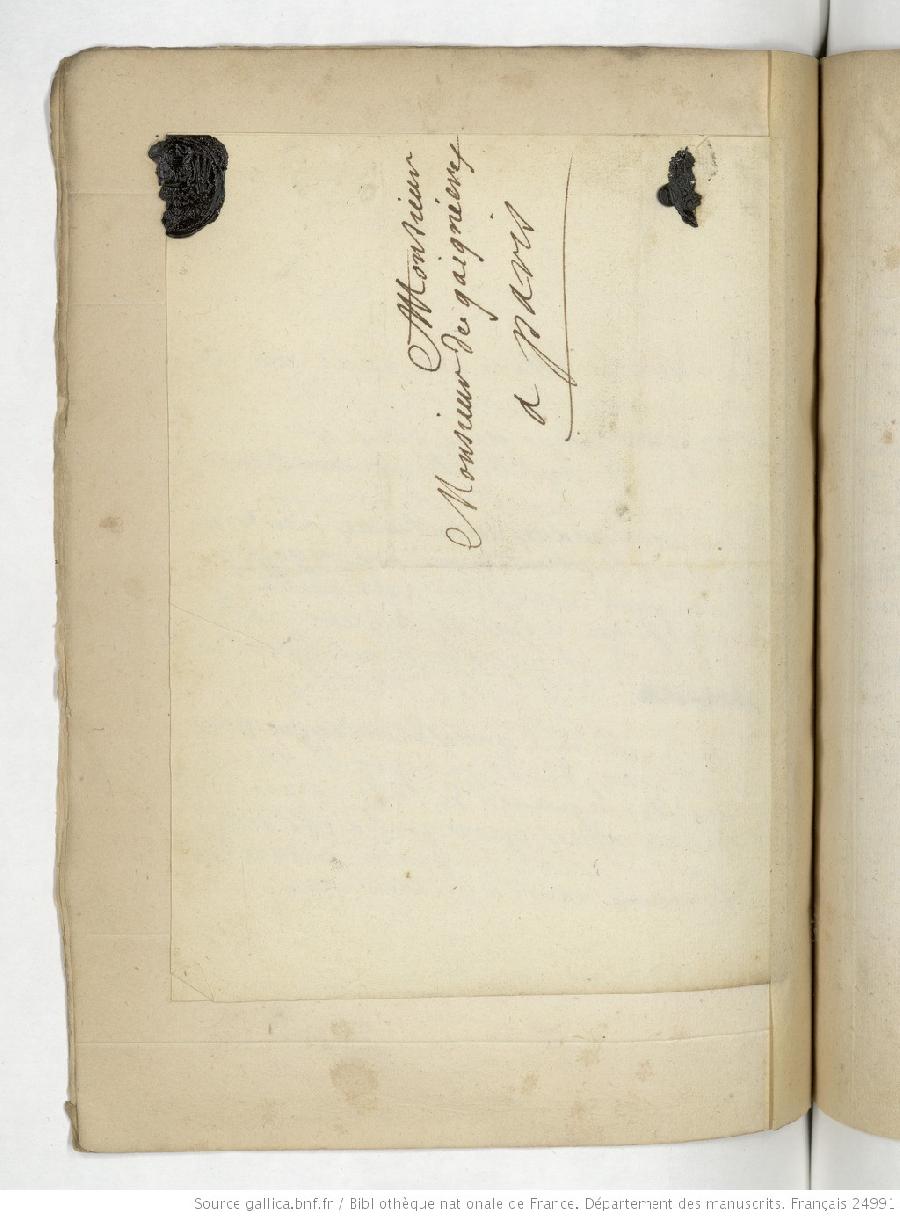 Monsieur
Monsieur de gaignieres
a paris
Source gallica.bnf.fr / Bibliothèque nationale de France. Département des manuscrits. Français 24991